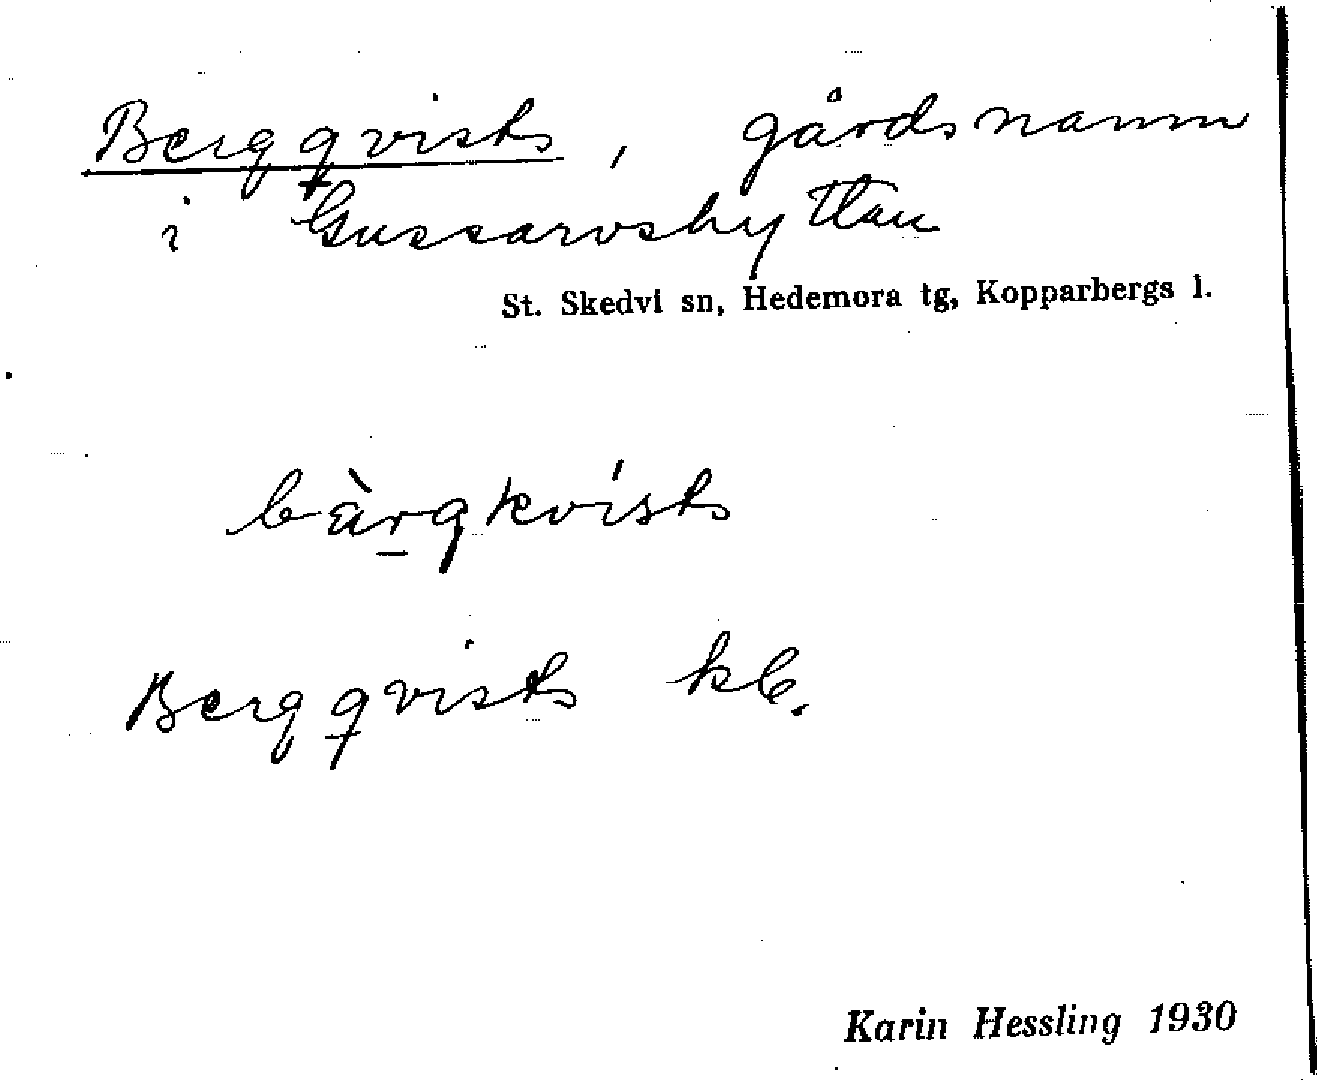 Bergqvists, gårdsnamn
i Gussarvshyttan
St. Skedvi sn, Hedemora tg, Kopparbergs l.
bàrgkvísts
Bergqvists kb.
Karin Hessling 1930